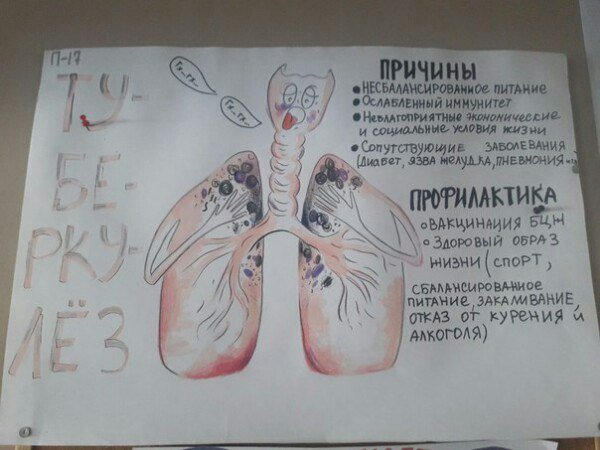 П-17
ТУ-
БЕ-
РКУ-
ЛЁЗ
Гх...гх...
Гх...гх...
ПРИЧИНЫ
НЕСБАЛАНСИРОВАННОЕ ПИТАНИЕ
ОСЛАБЛЕННЫЙ ИММУНИТЕТ
НЕБЛАГОПРИЯТНЫЕ ЭКОНОМИЧЕСКИЕ
И СОЦИАЛЬНЫЕ УСЛОВИЯ ЖИЗНИ
СОПУТСТВУЮЩИЕ ЗАБОЛЕВАНИЯ
(ДИАБЕТ, ЯЗВА ЖЕЛУДКА, ПНЕВМОНИЯ
ПРОФИЛАКТИКА
ВАКЦИНАЦИЯ БЦЖ
ЗДОРОВЫЙ ОБРАЗ
ЖИЗНИ (СПОРТ,
СБАЛАНСИРОВАННОЕ
ПИТАНИЕ, ЗАКАЛИВАНИЕ,
ОТКАЗ ОТ КУРЕНИЯ И
АЛКОГОЛЯ)